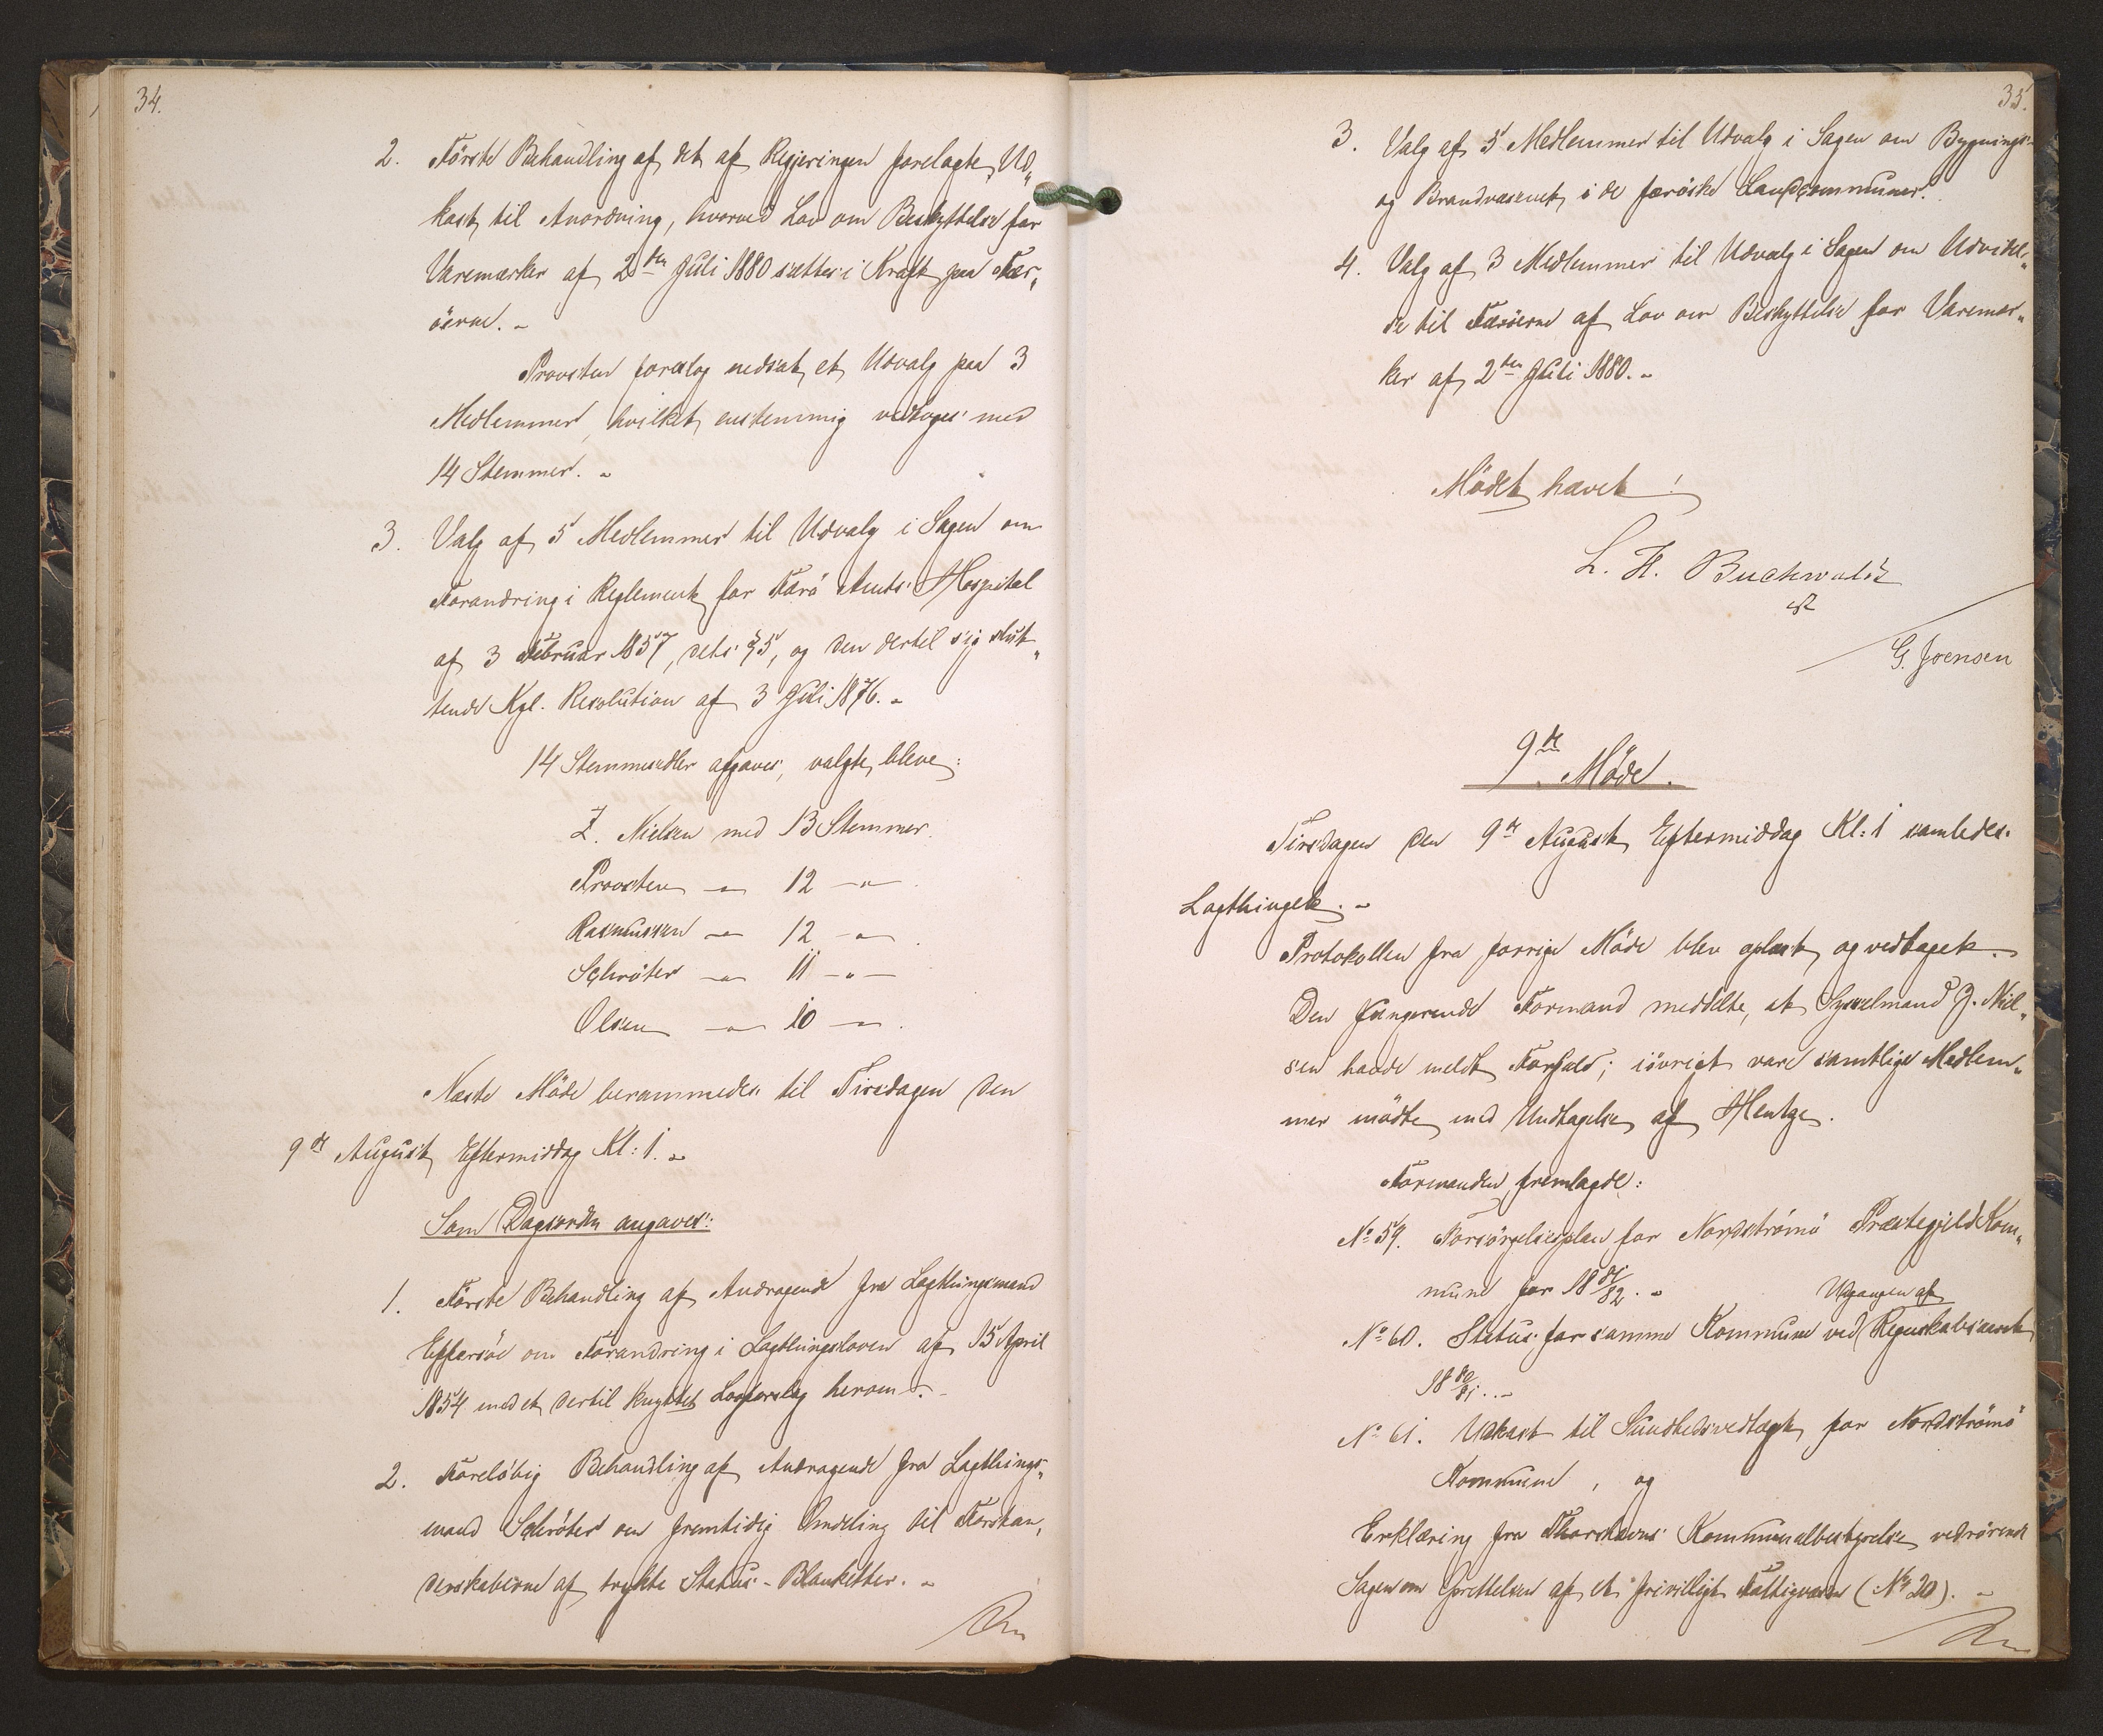 34.
2. Förste Behandling af det af Regjeringen forelagte Ud„
kast til Anordning, hvorved Lov om Beskyttelse for
Varemærker af 2den Juli 1880 sættes i Kraft paa Fær„
öerne. -
Provsten foreslog nedsat et Udvalg paa 3
Medlemmer, hvilket enstemmig vedtoges med
14 Stemmer. -
3. Valg af 5 Medlemmer til Udvalg i Sagen om
Forandring i Reglement for Færö Amts Hospital
af 3 Februar 1857, dets § 5, og den dertil sig slut„
tende Kgl. Resolution af 3 Juli 1876. -
14 Stemmesedler afgaves, valgte bleve:
Z. Nielsen med 13 Stemmer.
Provsten — " — 12 — " —
Rasmussen — " — 12 — " —
Schröter — " — 11 — " —
Olsen — " — 10 — " —
Næste Möde berammedes til Tirsdagen den
9de August Eftermiddag Kl: 1. -
Som Dagsorden angaves:
1. Förste Behandling af Andragende fra Lagthingsmand
Effersöe om Forandring i Lagthingsloven af 15 April
1854 med et dertil knyttet Lovforslag herom. -
2. Foreløbig Behandling af Andragende fra Lagthings„
mand Schröter om fremtidig Omdeling til Forstan„
derskaberne af trykte Status-Blanketter. -
35.
3. Valg af 5 Medlemmer til Udvalg i Sagen om Bygnings-
og Brandvæsenet i de færöiske Landcommuner.
4. Valg af 3 Medlemmer til Udvalg i Sagen om Udvidel„
se til Færöerne af Lov om Beskyttelse for Varemær„
ker af 2den Juli 1880. -
Mödet hævet!
L. H. Buchwaldt
G. Joensen
9de Möde.
Tirsdagen den 9de August Eftermiddag Kl: 1 samledes
Lagthinget. -
Protokollen fra forrige Möde blev oplæst og vedtaget. -
Den fungerende Formand meddelte, at Sysselmand J. Niel„
sen havde meldt Forfald; iövrigt vare samtlige Medlem„
mer mödte med Undtagelse af Hentze.
Formanden fremlagde:
No 59. Forsörgelsesplan for Nordströmö Præstegjeld Kom„
mune for 18 81/82. -
No 60. Status for samme Kommune ved Udgangen af Regnskabsaaret
18 80/81. -
No 61. Udkast til Sundhedsvedtægt for Nordströmö
Kommune, og
Erklæring fra Thorshavns Kommunalbestyrelse vedrörende
Sagen om Oprettelsen af et frivilligt Fattigvæsen (No 20). -